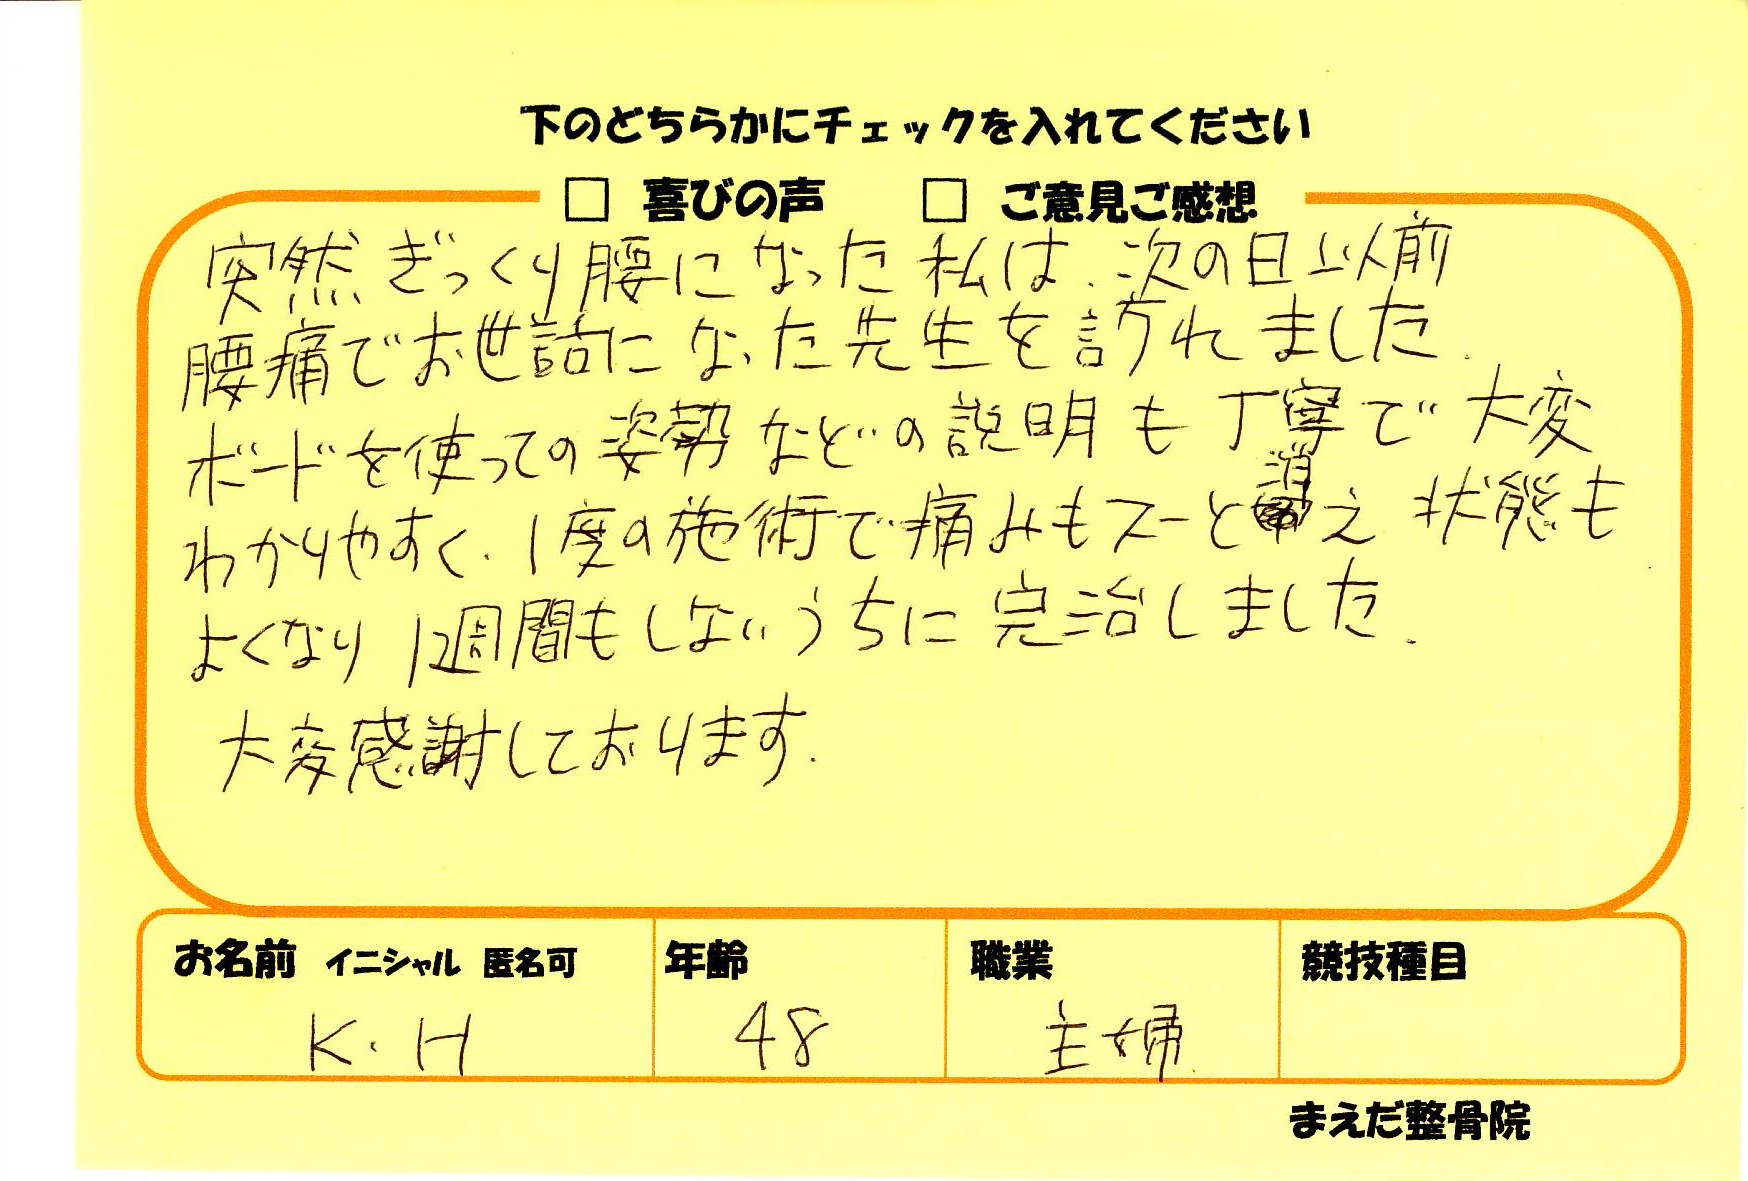 下のどちらかにチェックを入れてください
□ 喜びの声 □ ご意見ご感想
突然ぎっくり腰になった私は、次の日以前
腰痛でお世話になった先生を訪れました。
ボードを使っての姿勢などの説明も丁寧で大変
わかりやすく、1度の施術で痛みもスーと消え状態も
よくなり1週間もしないうちに完治しました。
大変感謝しております。
お名前 イニシャル 匿名可 年齢 職業 競技種目
K.H 48 主婦
まえだ整骨院